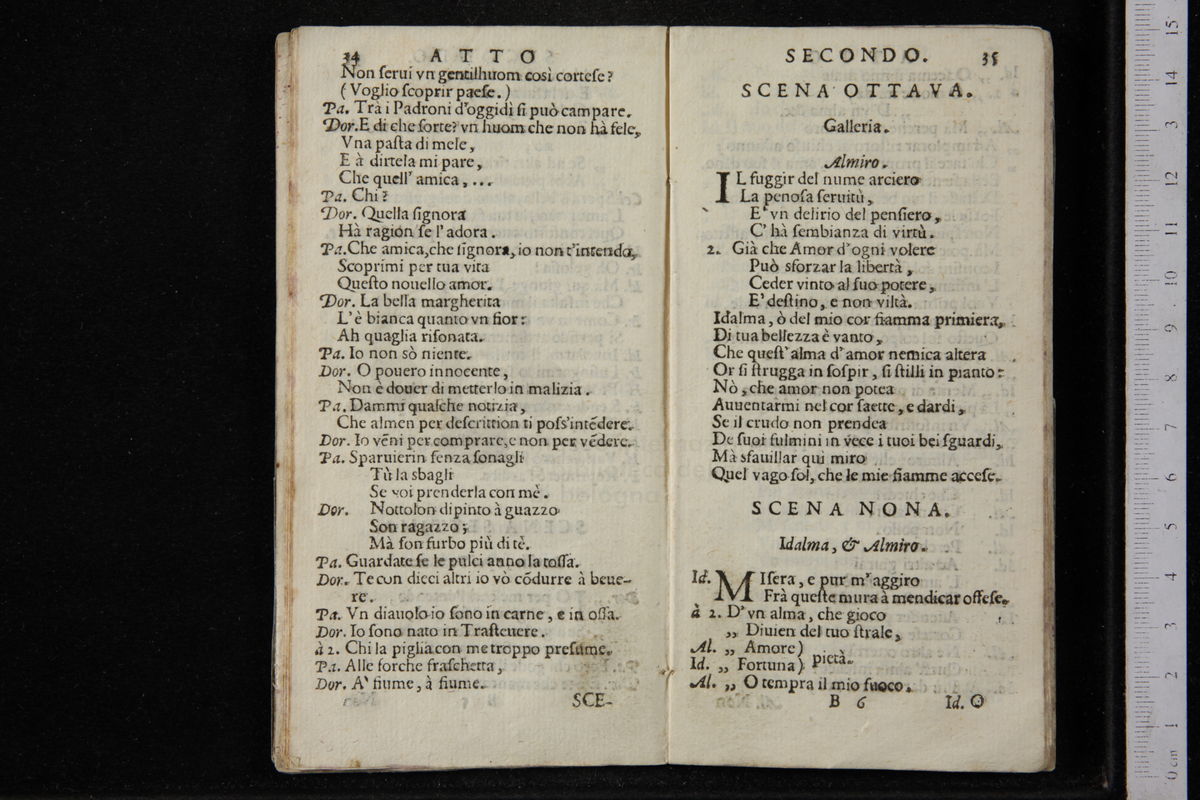 34 ATTO
Non ſerui vn gentilhuom così corteſe?
(Voglio ſcoprir paeſe.)
Pa. Trà i Padroni d'oggidì ſi può campare.
Dor. E di che ſorte? vn huom che non hà fele,
Vna paſta di mele,
E à dirtela mi pare,
Che quell' amica, ...
Pa. Chi?
Dor. Quella ſignora
Hà ragion ſe l'adora.
Pa. Che amica, che ſignora, io non t'intendo,
Scoprimi per tua vita
Queſto nouello amor.
Dor. La bella margherita
L'è bianca quanto vn fior:
Ah quaglia riſonata.
Pa. Io non sò niente.
Dor. O pouero innocente,
Non è douer di metterlo in malizia.
Pa. Dammi qualche notizia,
Che almen per deſcrittion ti poſs'intẽdere.
Dor. Io vẽni per comprare, e non per vẽdere.
Pa. Sparuierin ſenza ſonagli
Tù la sbagli
Se voi prenderla con mè.
Dor. Nottolon dipinto à guazzo
Son ragazzo;
Mà ſon furbo più di tè.
Pa. Guardate ſe le pulci anno la toſſa.
Dor. Te con dieci altri io vò cõdurre à beue-
re.
Pa. Vn diauolo io ſono in carne, e in oſſa.
Dor. Io ſono nato in Traſteuere.
à 2. Chi la piglia con me troppo preſume.
Pa. Alle forche fraſchetta,
Dor. A' fiume, à fiume.
SCE-
SECONDO. 35
SCENA OTTAVA.
Galleria.
Almiro.
IL fuggir del nume arciero
La penoſa ſeruitù,
E' vn delirio del penſiero,
C' hà ſembianza di virtù.
2. Già che Amor d'ogni volere
Può sforzar la libertà,
Ceder vinto al ſuo potere,
E' deſtino, e non viltà.
Idalma, ò del mio cor fiamma primiera,
Di tua bellezza è vanto,
Che queſt' alma d' amor nemica altera
Or ſi ſtrugga in ſoſpir, ſi ſtilli in pianto:
Nò, che amor non potea
Auuentarmi nel cor ſaette, e dardi,
Se il crudo non prendea
De ſuoi fulmini in vece i tuoi bei ſguardi,
Mà sfauillar quì miro
Quel vago ſol, che le mie fiamme acceſe.
SCENA NONA.
Idalma, & Almiro.
Id. MIſera, e pur m'aggiro
Frà queſte mura à mendicar offeſe.
à 2. D'vn alma, che gioco
„ Diuien del tuo ſtrale,
Al. „ Amore)
Id. „ Fortuna) pietà.
Al. „ O tempra il mio fuoco.
B 6 Id. O